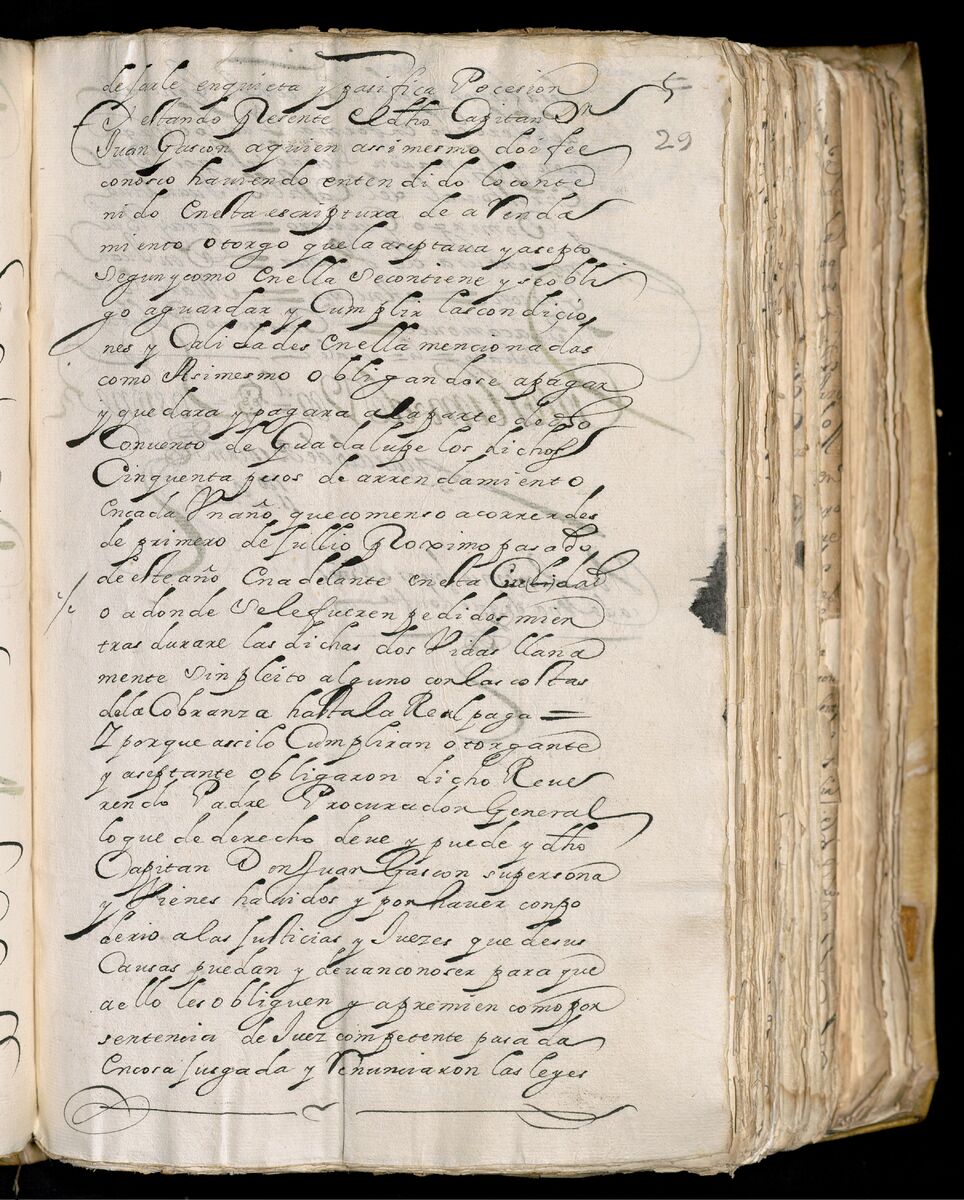 dejarle enquieta y pasifica Pocesion
Y estando Presente El dho Capitan Dn
Juan Gascon aquien assimesmo doi fee
conosco haviendo entendido loconte
nido enesta escriptura de aRenda
miento otorgo quela aseptava y asepto
segun y como enella secontiene y seobli
go aguardar y Cumplir lascondicio
nes y Calidades enella mencionadas
como Asimesmo obligandose apagar
y que dara y pagara alaparte de dho
Convento de Guadalupe los dichos
Cinquenta pesos de arrendamiento
encada Un año quecomenso acorrer des
de primero de Jullio Proximo pasado
de este año enadelante enesta Ciudad
o adonde sele fueren pedidos mien
tras durare las dichas dos Vidas llana
mente sin pleito alguno con las costas
dela Cobranza hasta la Real paga =
Y porque assilo Cumpliran otorgante
y aseptante obligaron dicho Reve
rendo Padre Procurador General
loque de derecho deve y puede y dho
Capitan Don Juan Gascon supersona
y Vienes havidos y por haver conpo
derio alas Justicias y Juezes que desus
Causas puedan y devanconoser para que
aello les obliguen y apremien como por
sentencia de Juez competente pasada
Encosa Jusgada y Renunciaron las leyes
5
29